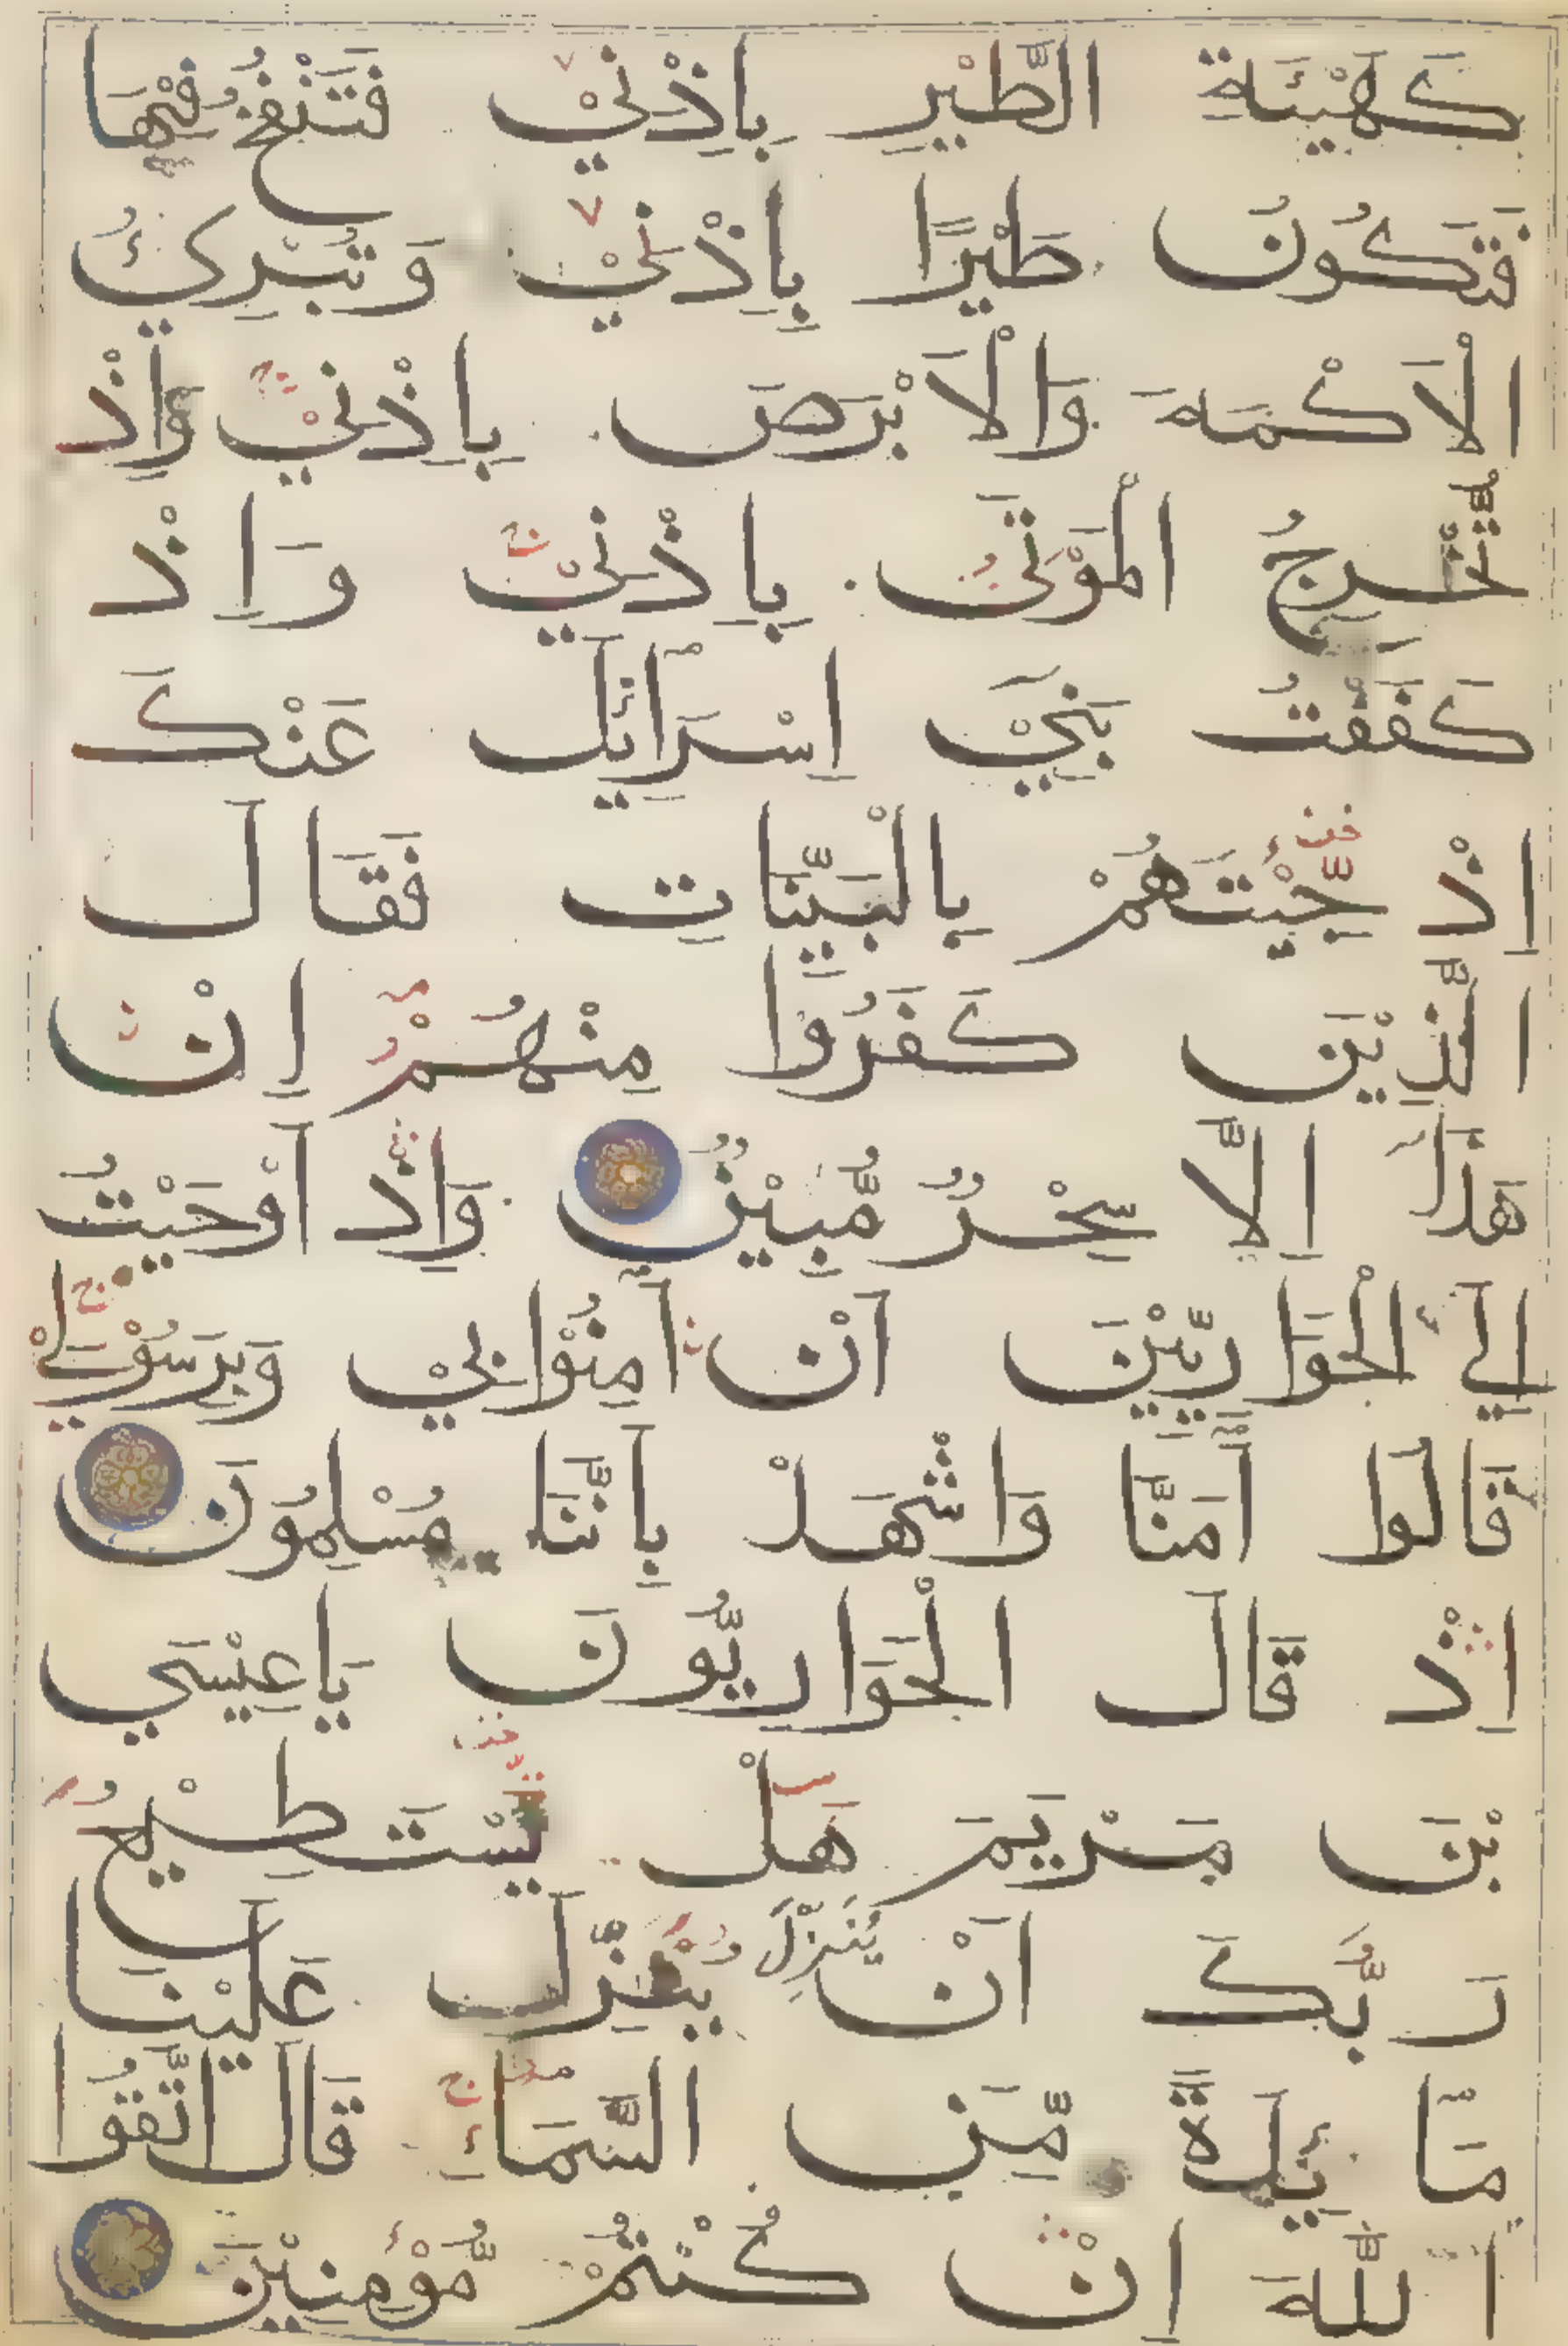 كَهَيْئَةِ الطَّيْرِ بِاِذْنِيْ فَتَنْفُخُ فِيْهَا
فَتَكُوْنُ طَيْرًا بِاِذْنِيْ وَتُبْرِئُ
الْاَكْمَهَ وَالْاَبْرَصَ بِاِذْنِيْ وَاِذْ
تُخْرِجُ الْمَوْتٰى بِاِذْنِيْ وَاِذْ
كَفَفْتُ بَنِيْ اِسْرَائِيْلَ عَنْكَ
اِذْ جِئْتَهُمْ بِالْبَيِّنَاتِ فَقَالَ
الَّذِيْنَ كَفَرُوْا مِنْهُمْ اِنْ
هٰذَا اِلَّا سِحْرٌ مُّبِيْنٌ وَاِذْ اَوْحَيْتُ
اِلَي الْحَوَارِيّٖيْنَ اَنْ اٰمِنُوْا بِيْ وَبِرَسُوْلِيْ
قَالُوْا اٰمَنَّا وَاشْهَدْ بِاَنَّنَا مُسْلِمُوْنَ
اِذْ قَالَ الْحَوَارِيُّوْنَ يَاعِيْسَي
بْنَ مَرْيَمَ هَلْ يَسْتَطِيْعُ
رَبُّكَ اَنْ يُنَزِّلَ يُنَزِّلَ عَلَيْنَا
مَائِدَةً مِّنَ السَّمَاءِ قَالَ اتَّقُوا
اللّٰهَ اِنْ كُنْتُمْ مُّؤْمِنِيْنَ